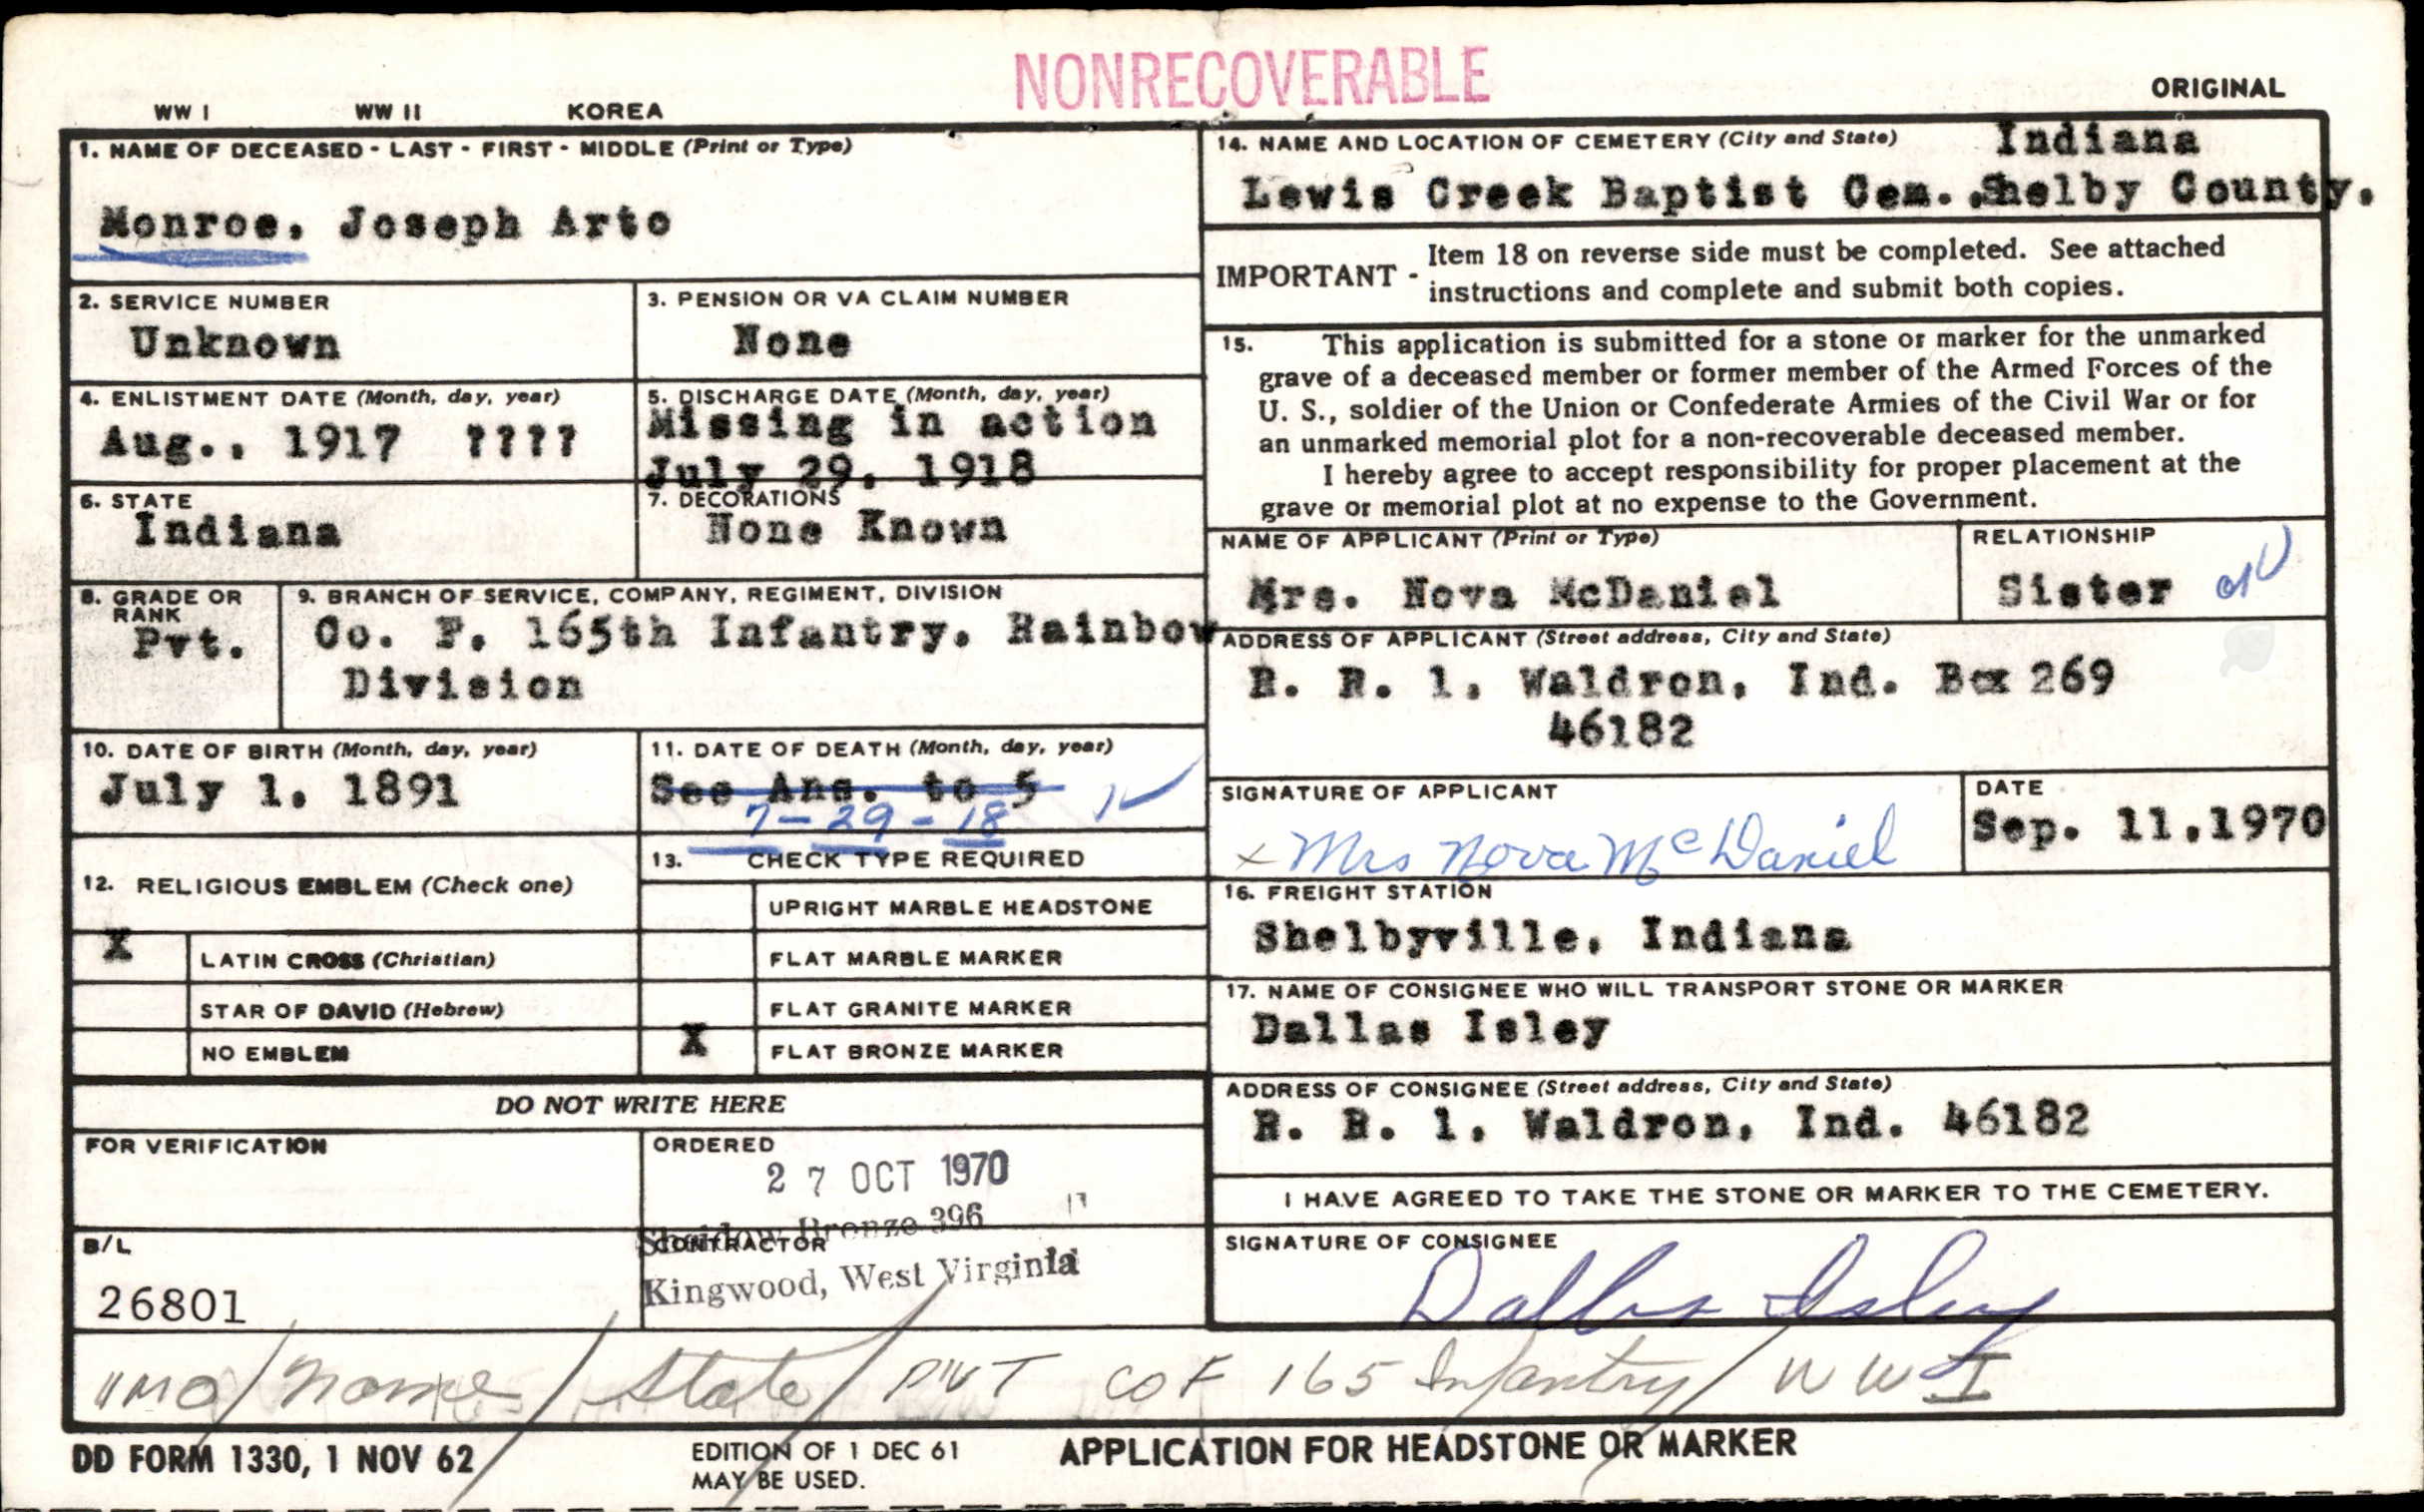 NONRECOVERABLE
ORIGINAL
WW I WW II KOREA
1. NAME OF DECEASED - LAST - FIRST - MIDDLE (Print or Type)
Monroe, Joseph Arto
2. SERVICE NUMBER
Unknown
3. PENSION OR VA CLAIM NUMBER
None
4. ENLISTMENT DATE (Month, day, year)
Aug., 1917 ????
5. DISCHARGE DATE (Month, day, year)
Missing in action
July 29, 1918
6. STATE
Indiana
7. DECORATIONS
None Known
8. GRADE OR
RANK
Pvt.
9. BRANCH OF SERVICE, COMPANY, REGIMENT, DIVISION
Co. F, 165th Infantry, Rainbow
Division
10. DATE OF BIRTH (Month, day, year)
July 1, 1891
11. DATE OF DEATH (Month, day, year)
See Ans. to 5
7-29-18
12. RELIGIOUS EMBLEM (Check one)
X LATIN CROSS (Christian)
STAR OF DAVID (Hebrew)
NO EMBLEM
13. CHECK TYPE REQUIRED
UPRIGHT MARBLE HEADSTONE
FLAT MARBLE MARKER
FLAT GRANITE MARKER
X FLAT BRONZE MARKER
DO NOT WRITE HERE
FOR VERIFICATION
ORDERED
27 OCT 1970
B/L
26801
Sheidow Bronze 396
CONTRACTOR
Kingwood, West Virginia
14. NAME AND LOCATION OF CEMETERY (City and State) Indiana
Lewis Creek Baptist Cem. Shelby County.
IMPORTANT - Item 18 on reverse side must be completed. See attached
instructions and complete and submit both copies.
15. This application is submitted for a stone or marker for the unmarked
grave of a deceased member or former member of the Armed Forces of the
U. S., soldier of the Union or Confederate Armies of the Civil War or for
an unmarked memorial plot for a non-recoverable deceased member.
I hereby agree to accept responsibility for proper placement at the
grave or memorial plot at no expense to the Government.
NAME OF APPLICANT (Print or Type)
Mrs. Nova McDaniel
RELATIONSHIP
Sister
ADDRESS OF APPLICANT (Street address, City and State)
R. R. 1, Waldron, Ind. Box 269
46182
SIGNATURE OF APPLICANT
x Mrs Nova McDaniel
DATE
Sep. 11,1970
16. FREIGHT STATION
Shelbyville, Indiana
17. NAME OF CONSIGNEE WHO WILL TRANSPORT STONE OR MARKER
Dallas Isley
ADDRESS OF CONSIGNEE (Street address, City and State)
R. R. 1, Waldron, Ind. 46182
I HAVE AGREED TO TAKE THE STONE OR MARKER TO THE CEMETERY.
SIGNATURE OF CONSIGNEE
Dallas Isley
IMO/Name/State/PVT CO F 165 Infantry/WW I
DD FORM 1330, 1 NOV 62
EDITION OF 1 DEC 61
MAY BE USED.
APPLICATION FOR HEADSTONE OR MARKER